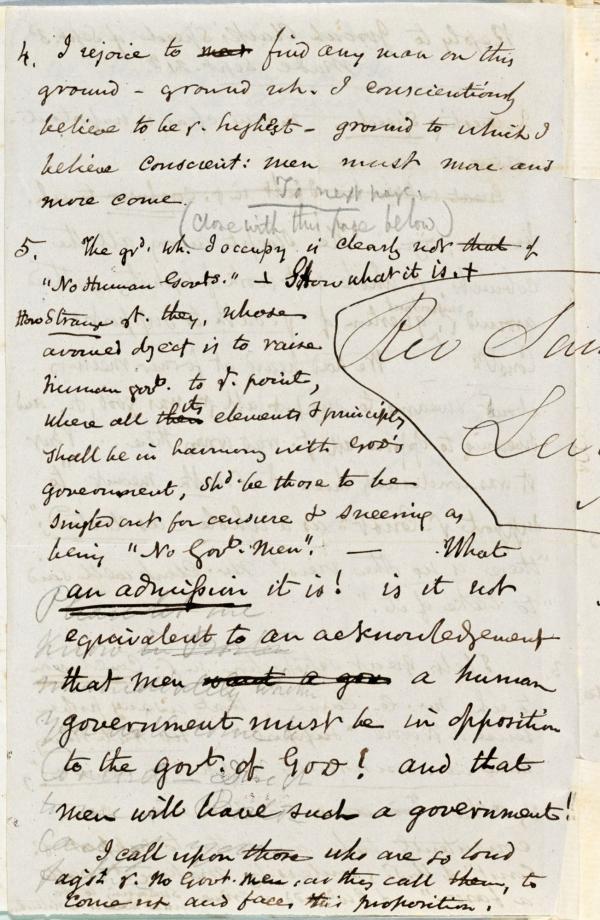 4. I rejoice to meet find any man on this
ground – ground wh. I conscientiously
believe to be ye. highest – ground to which I
believe conscient: men must more and
more come.
To next page.
(close with this page below)
5. The grd. wh. I occupy is clearly not that of
"No Human Govts." – Show what it is. +
How Strange yt. they, whose
avowed object is to raise
human govt. to ye. point,
where all their its elements & principles
shall be in harmony with God's
government, shd. be those to be
singled out for censure & sneering as
being "No Govt. Men". — What
an admission it is! is it not
equivalent to an acknowledgement
that men want a gov a human
government must be in opposition
to the govt. of God! and that
men will have such a government!
I call upon those who are so loud
agst. ye. No Govt. men, as they call them, to
come up and face this proposition.
Rev Sam